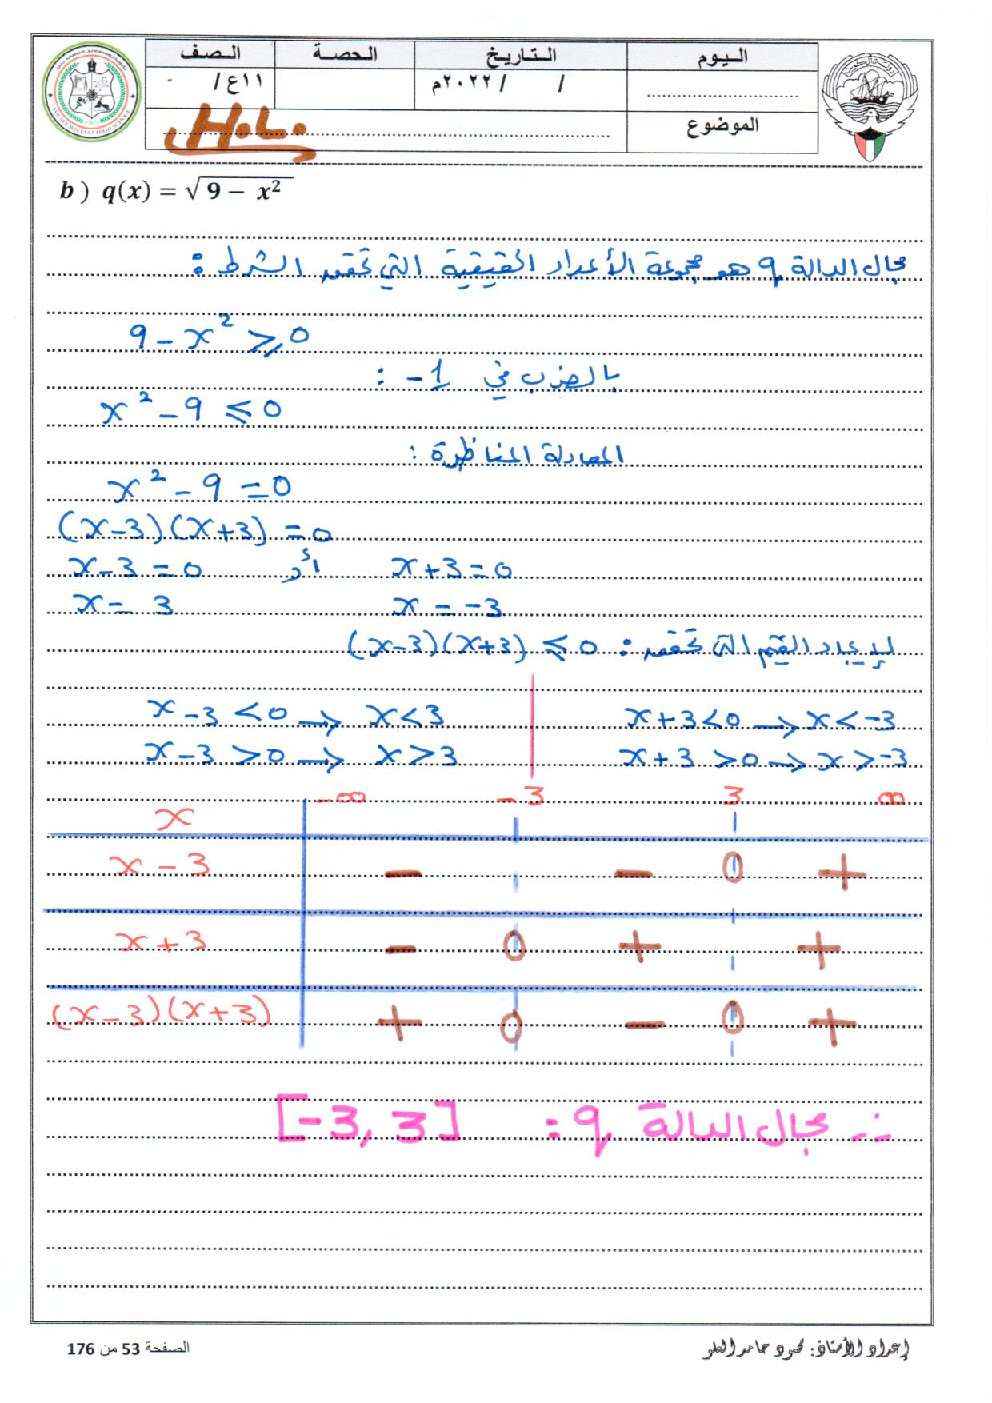 اليوم التاريخ الحصة الصف
/ / ٢٠٢٢م ١١ع /
الموضوع
b ) q(x) = √9 − x²
مجال الدالة q هو مجموعة الأعداد الحقيقية التي تحقق الشرط :
9 − x² ⩾ 0
بالضرب في 1 − :
x² − 9 ⩽ 0
المعادلة المناظرة :
x² − 9 = 0
(x−3)(x+3) = 0
x−3 = 0 أو x+3 = 0
x = 3 x = −3
لإيجاد القيم التي تحقق : (x−3)(x+3) ⩽ 0
x−3 < 0 → x < 3 x+3 < 0 → x < −3
x−3 > 0 → x > 3 x+3 > 0 → x > −3
x −∞ −3 3 ∞
x − 3 − − 0 +
x + 3 − 0 + +
(x−3)(x+3) + 0 − 0 +
∴ مجال الدالة q : [−3, 3]
إعداد الأستاذ: محمود حامد العلو
الصفحة 53 من 176